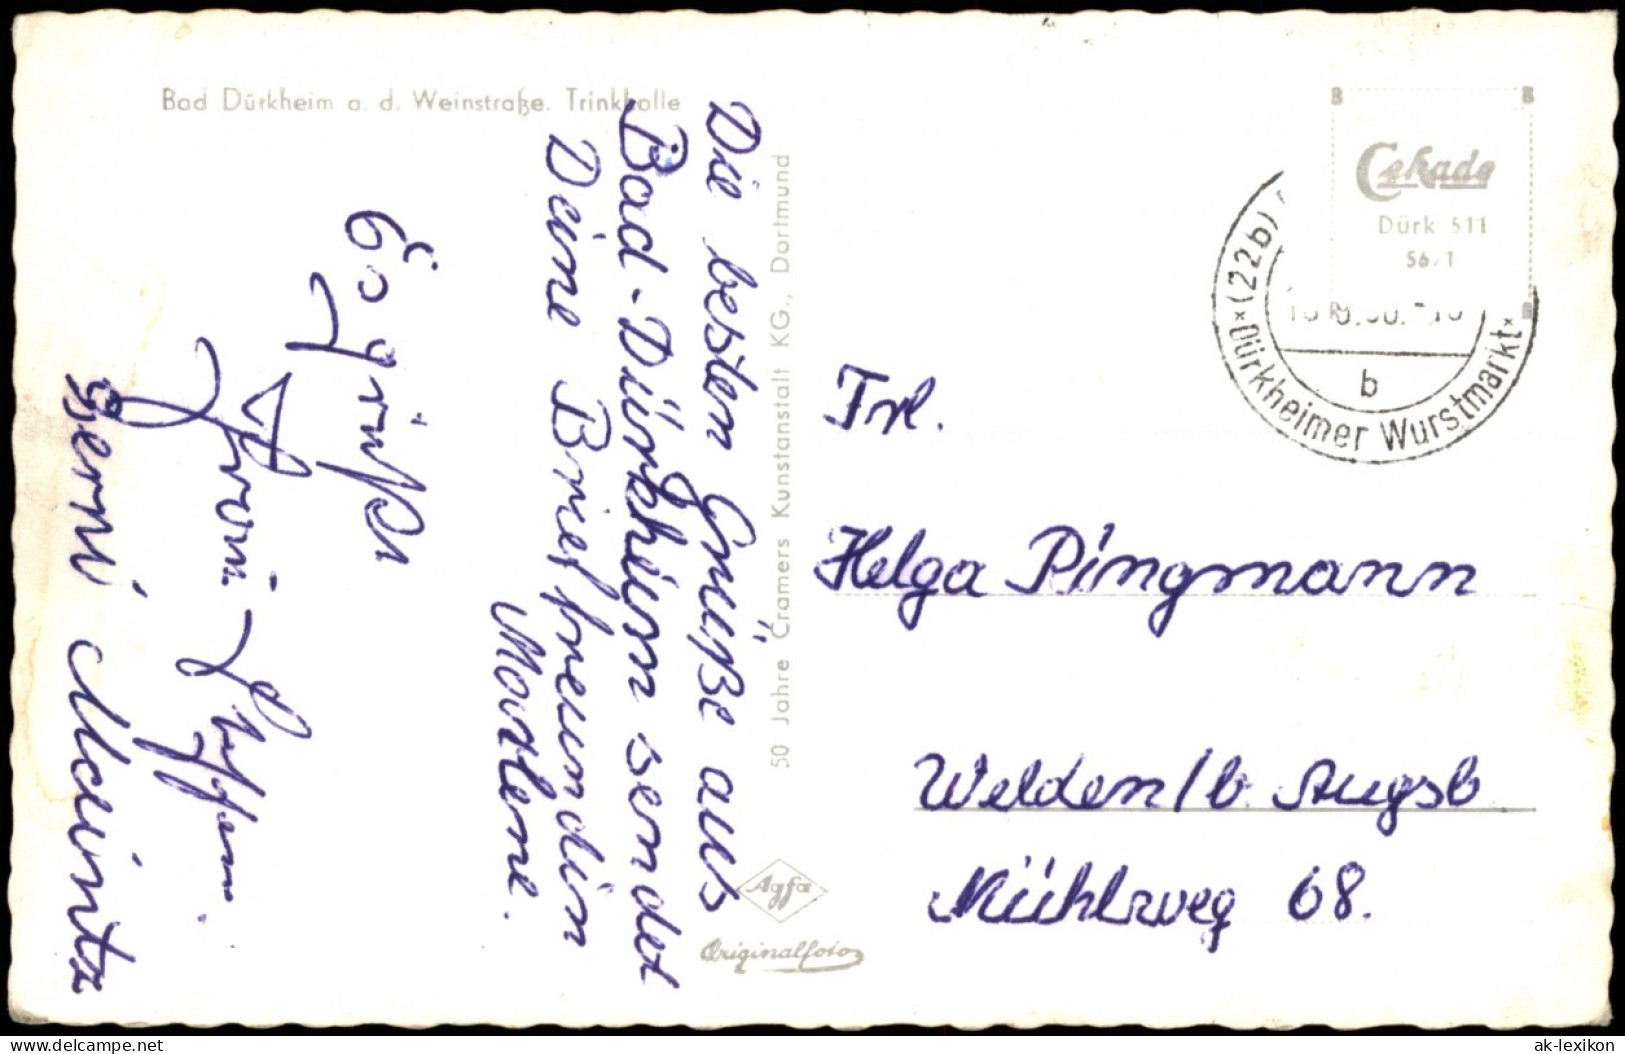 Bad Dürkheim a. d. Weinstraße. Trinkhalle
Die besten Grüße aus
Bad-Dürkheim sendet
Deine Brieffreundin
Marlene.
Es grüßt
Berni Meintz
50 Jahre Cramers Kunstanstalt KG., Dortmund
Agfa
Originalfoto
Cekade
Dürk 511
56/1
(22b)
b
Dürkheimer Wurstmarkt
Frl.
Helga Pingmann
Welden/b. Augsb
Mühlweg 68.
ansichtskarten-center.de
ak-lexikon